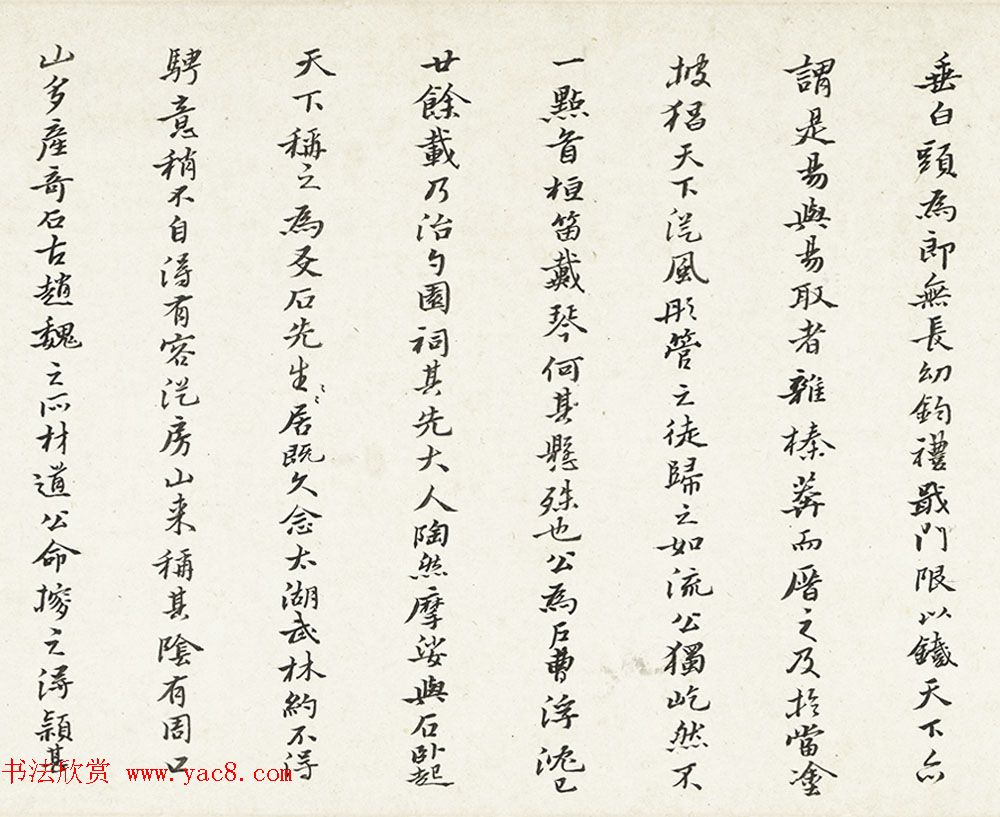 垂白頭為郎無長幼鈞禮戢門限以鐵天下亦
謂是易與易取者雜榛莽而厝之及於當塗
披猖天下從風彤管之徒歸之如流公獨屹然不
一點首桓笛戴琴何其懸殊也公為后曹浮沈已
廿餘載乃治勺園祠其先大人陶然摩娑與石臥起
天下稱之為友石先生〻〻居既久念太湖武林約不得
騁意稍不自得有客從房山来稱其陰有周口
山多產奇石古趙魏之所材道公命掺之得穎甚
书法欣赏 www.yac8.com